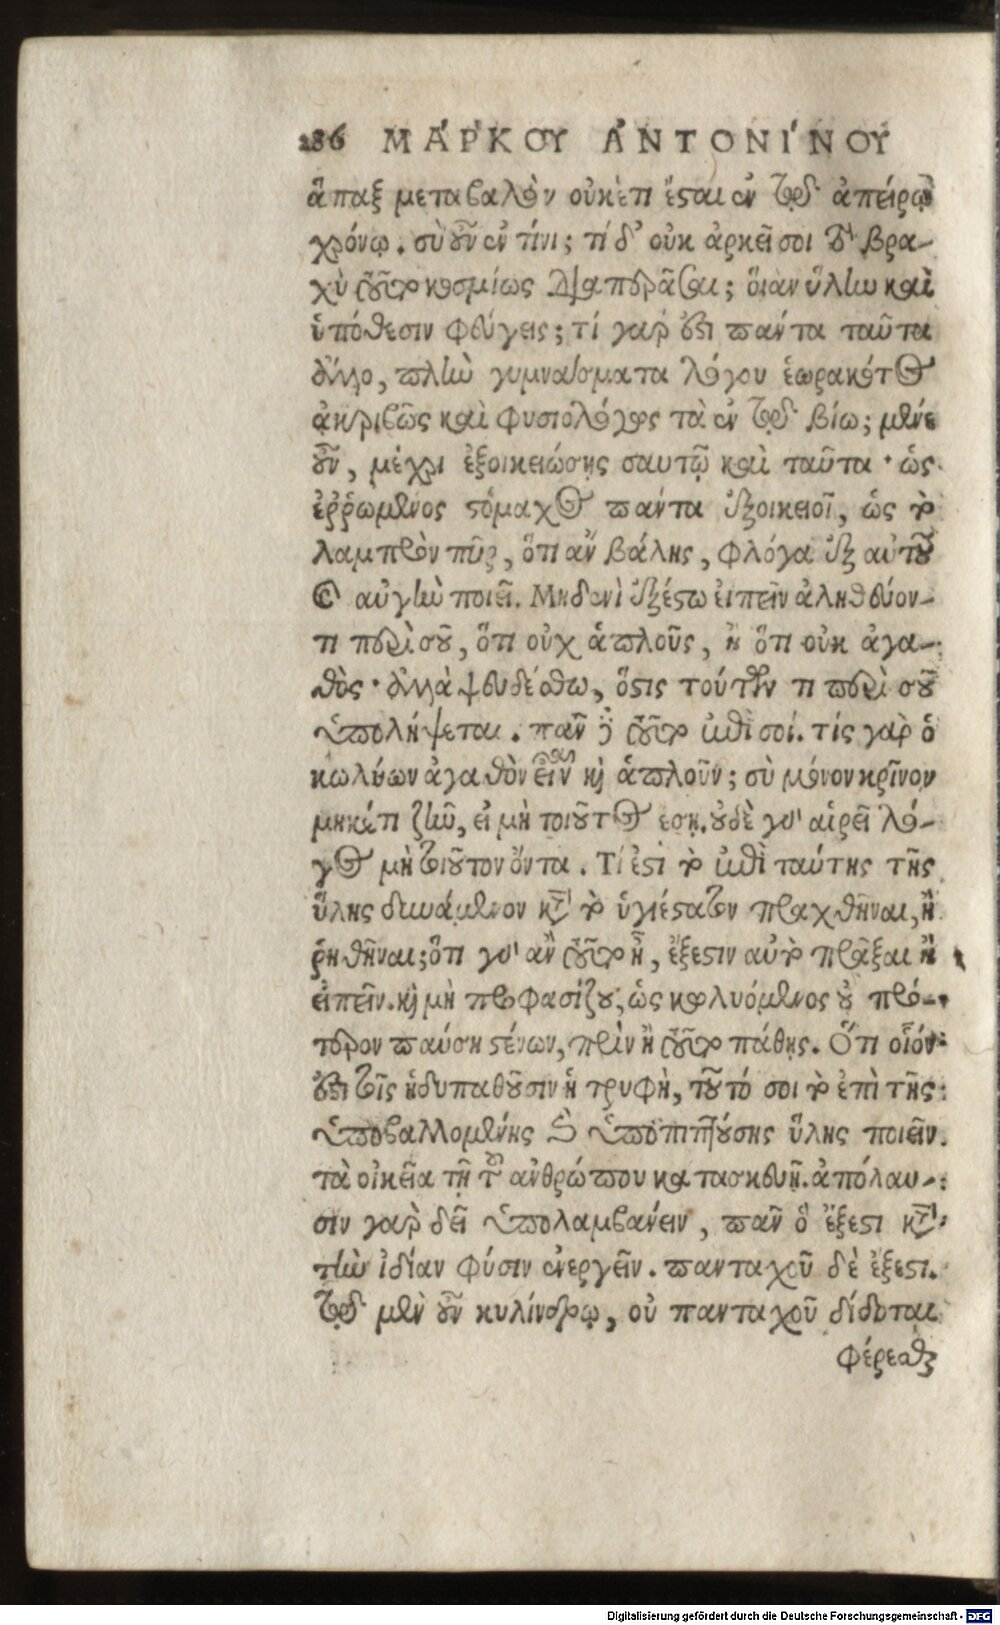 286 ΜΆΡΚΟΥ ἈΝΤΟΝΊΝΟΥ
ἅπαξ μεταβαλὸν οὐκέτι ἔσται ἐν τῷ ἀπείρῳ
χρόνῳ. σὺ οὖν ἐν τίνι; τί δ' οὐκ ἀρκεῖ σοι τὸ βρα-
χὺ τοῦτο κοσμίως διαπερᾶσαι; οἵαν ὕλην καὶ
ὑπόθεσιν φεύγεις; τί γάρ ἐστι πάντα ταῦτα
ἄλλο, πλὴν γυμνάσματα λόγου ἑωρακότος
ἀκριβῶς καὶ φυσιολόγως τὰ ἐν τῷ βίῳ; μένε
οὖν, μέχρι ἐξοικειώσῃς σαυτῷ καὶ ταῦτα· ὡς
ἐῤῥωμένος στόμαχος πάντα ἐξοικειοῖ, ὡς τὸ
λαμπρὸν πῦρ, ὅτι ἂν βάλῃς, φλόγα ἐξ αὐτοῦ
καὶ αὐγὴν ποιεῖ. Μηδενὶ ἐξέστω εἰπεῖν ἀληθεύον-
τι περὶ σοῦ, ὅτι οὐχ ἁπλοῦς, ἢ ὅτι οὐκ ἀγα-
θὸς· ἀλλὰ ψευδέσθω, ὅστις τούτων τι περὶ σοῦ
ὑπολήψεται. πᾶν δὲ τοῦτο ἐπὶ σοί. τίς γὰρ ὁ
κωλύων ἀγαθὸν εἶναι καὶ ἁπλοῦν; σὺ μόνον κρῖνον
μηκέτι ζῆν, εἰ μὴ τοιοῦτος ἔσῃ. οὐδὲ γὰρ αἱρεῖ λό-
γος μὴ τοιοῦτον ὄντα. Τί ἐστι τὸ ἐπὶ ταύτης τῆς
ὕλης δυνάμενον κατὰ τὸ ὑγιέστατον πραχθῆναι, ἢ
ῥηθῆναι; ὅτι γὰρ ἂν τοῦτο ᾖ, ἔξεστιν αὐτὸ πρᾶξαι ἢ
εἰπεῖν. καὶ μὴ προφασίζου, ὡς κωλυόμενος οὐ πρό-
τερον παύσῃ στένων, πρὶν ἢ τοῦτο πάθῃς. Ὅτι οἷόν
ἐστι τοῖς ἡδυπαθοῦσιν ἡ τρυφὴ, τοῦτό σοι τὸ ἐπὶ τῆς
ὑποβαλλομένης καὶ ὑποπιπτούσης ὕλης ποιεῖν
τὰ οἰκεῖα τῇ τοῦ ἀνθρώπου κατασκευῇ. ἀπόλαυ-
σιν γὰρ δεῖ ὑπολαμβάνειν, πᾶν ὃ ἔξεστι κατὰ
τὴν ἰδίαν φύσιν ἐνεργεῖν. πανταχοῦ δὲ ἔξεστι.
τῷ μὲν οὖν κυλίνδρῳ, οὐ πανταχοῦ δίδοται
φέρεσθαι
Digitalisierung gefördert durch die Deutsche Forschungsgemeinschaft - DFG